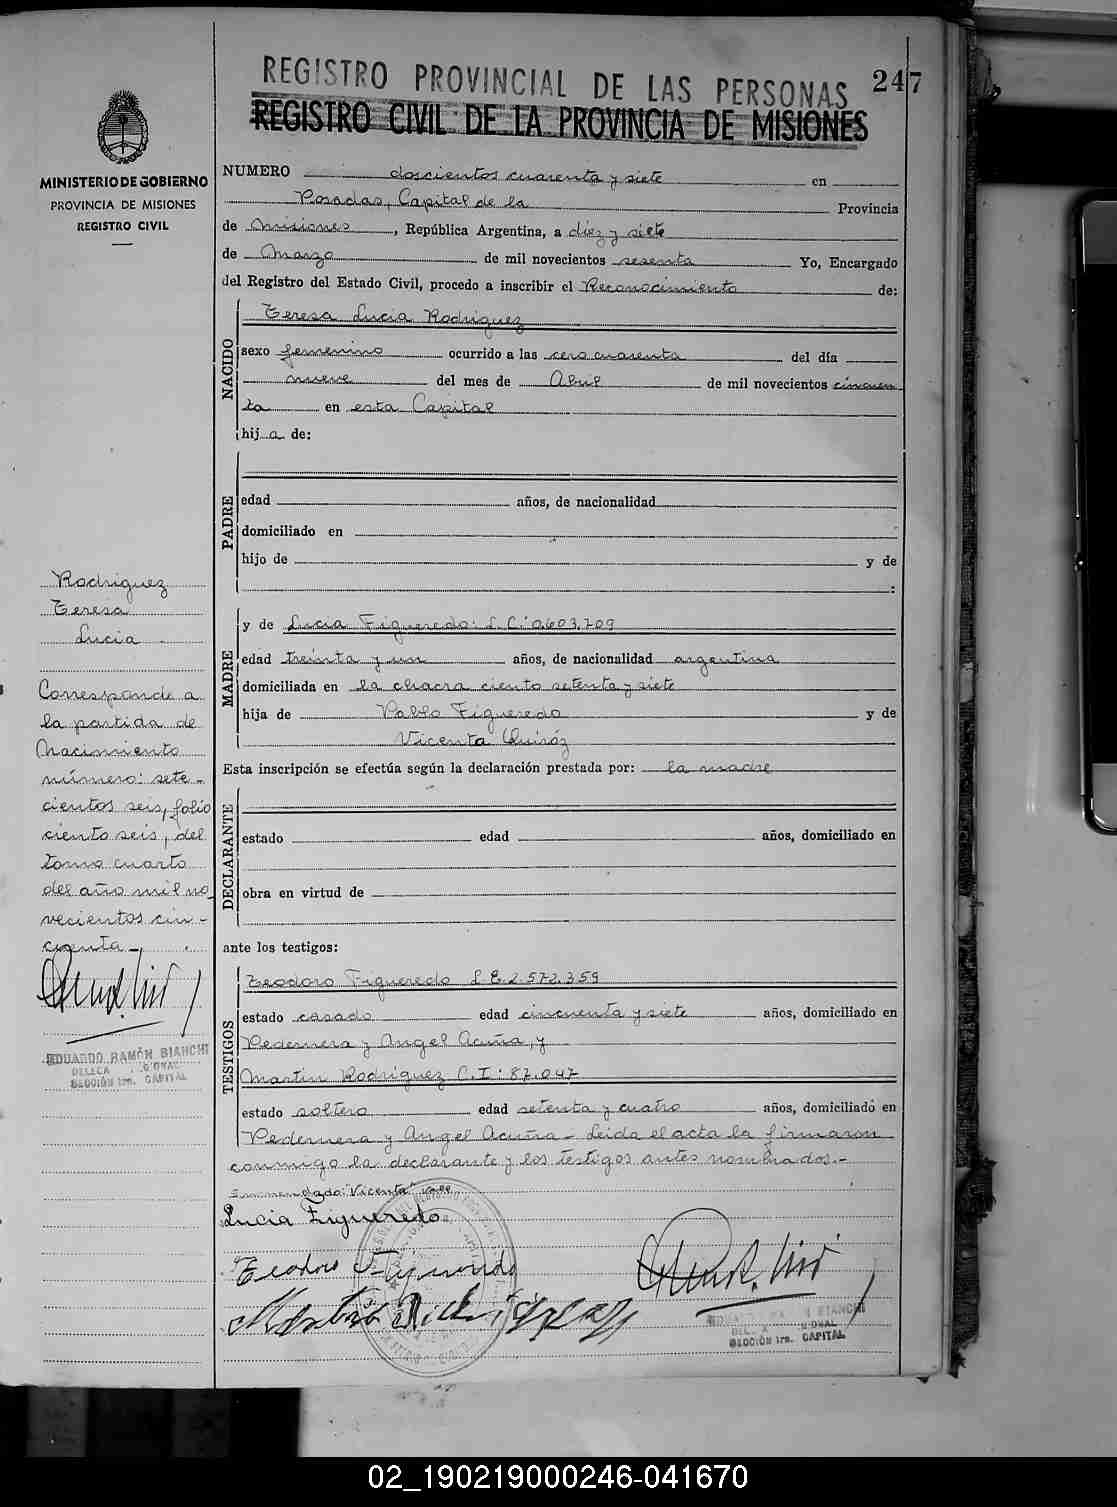 REGISTRO PROVINCIAL DE LAS PERSONAS
247
REGISTRO CIVIL DE LA PROVINCIA DE MISIONES
MINISTERIO DE GOBIERNO
PROVINCIA DE MISIONES
REGISTRO CIVIL
NUMERO doscientos cuarenta y siete en
Posadas, Capital de la Provincia
de Misiones, República Argentina, a diez y siete
de Marzo de mil novecientos sesenta Yo, Encargado
del Registro del Estado Civil, procedo a inscribir el Reconocimiento de:
NACIDO
Teresa Lucia Rodriguez
sexo femenino ocurrido a las cero cuarenta del día
nueve del mes de Abril de mil novecientos cincuen
ta en esta Capital
hij a de:
PADRE
edad años, de nacionalidad
domiciliado en
hijo de y de
:
MADRE
y de Lucia Figueredo: L.C: 0.603.709
edad treinta y un años, de nacionalidad argentina
domiciliada en la chacra ciento setenta y siete
hija de Pablo Figueredo y de
Vicenta Quiróz
Esta inscripción se efectúa según la declaración prestada por: la madre
DECLARANTE
estado edad años, domiciliado en
obra en virtud de
ante los testigos:
TESTIGOS
Teodoro Figueredo L E 2.572.359
estado casado edad cincuenta y siete años, domiciliado en
Pedernera y Angel Acuña, y
Martin Rodriguez C.I: 87.047
estado soltero edad setenta y cuatro años, domiciliado en
Pedernera y Angel Acuña - Leida el acta la firmaron
conmigo la declarante y los testigos antes nombrados.-
Enmendado: "Vicenta" vale
Lucia Figueredo
Teodoro Figueredo
Martin Rodriguez
Rodriguez
Teresa
Lucia
Corresponde a
la partida de
Nacimiento
número: sete-
cientos seis, folio
ciento seis, del
tomo cuarto
del año mil no
vecientos cin-
cuenta-
EDUARDO RAMÓN BIANCHI
SECCIÓN 1ra. CAPITAL
BIANCHI
SECCIÓN 1ra. CAPITAL
02_190219000246-041670